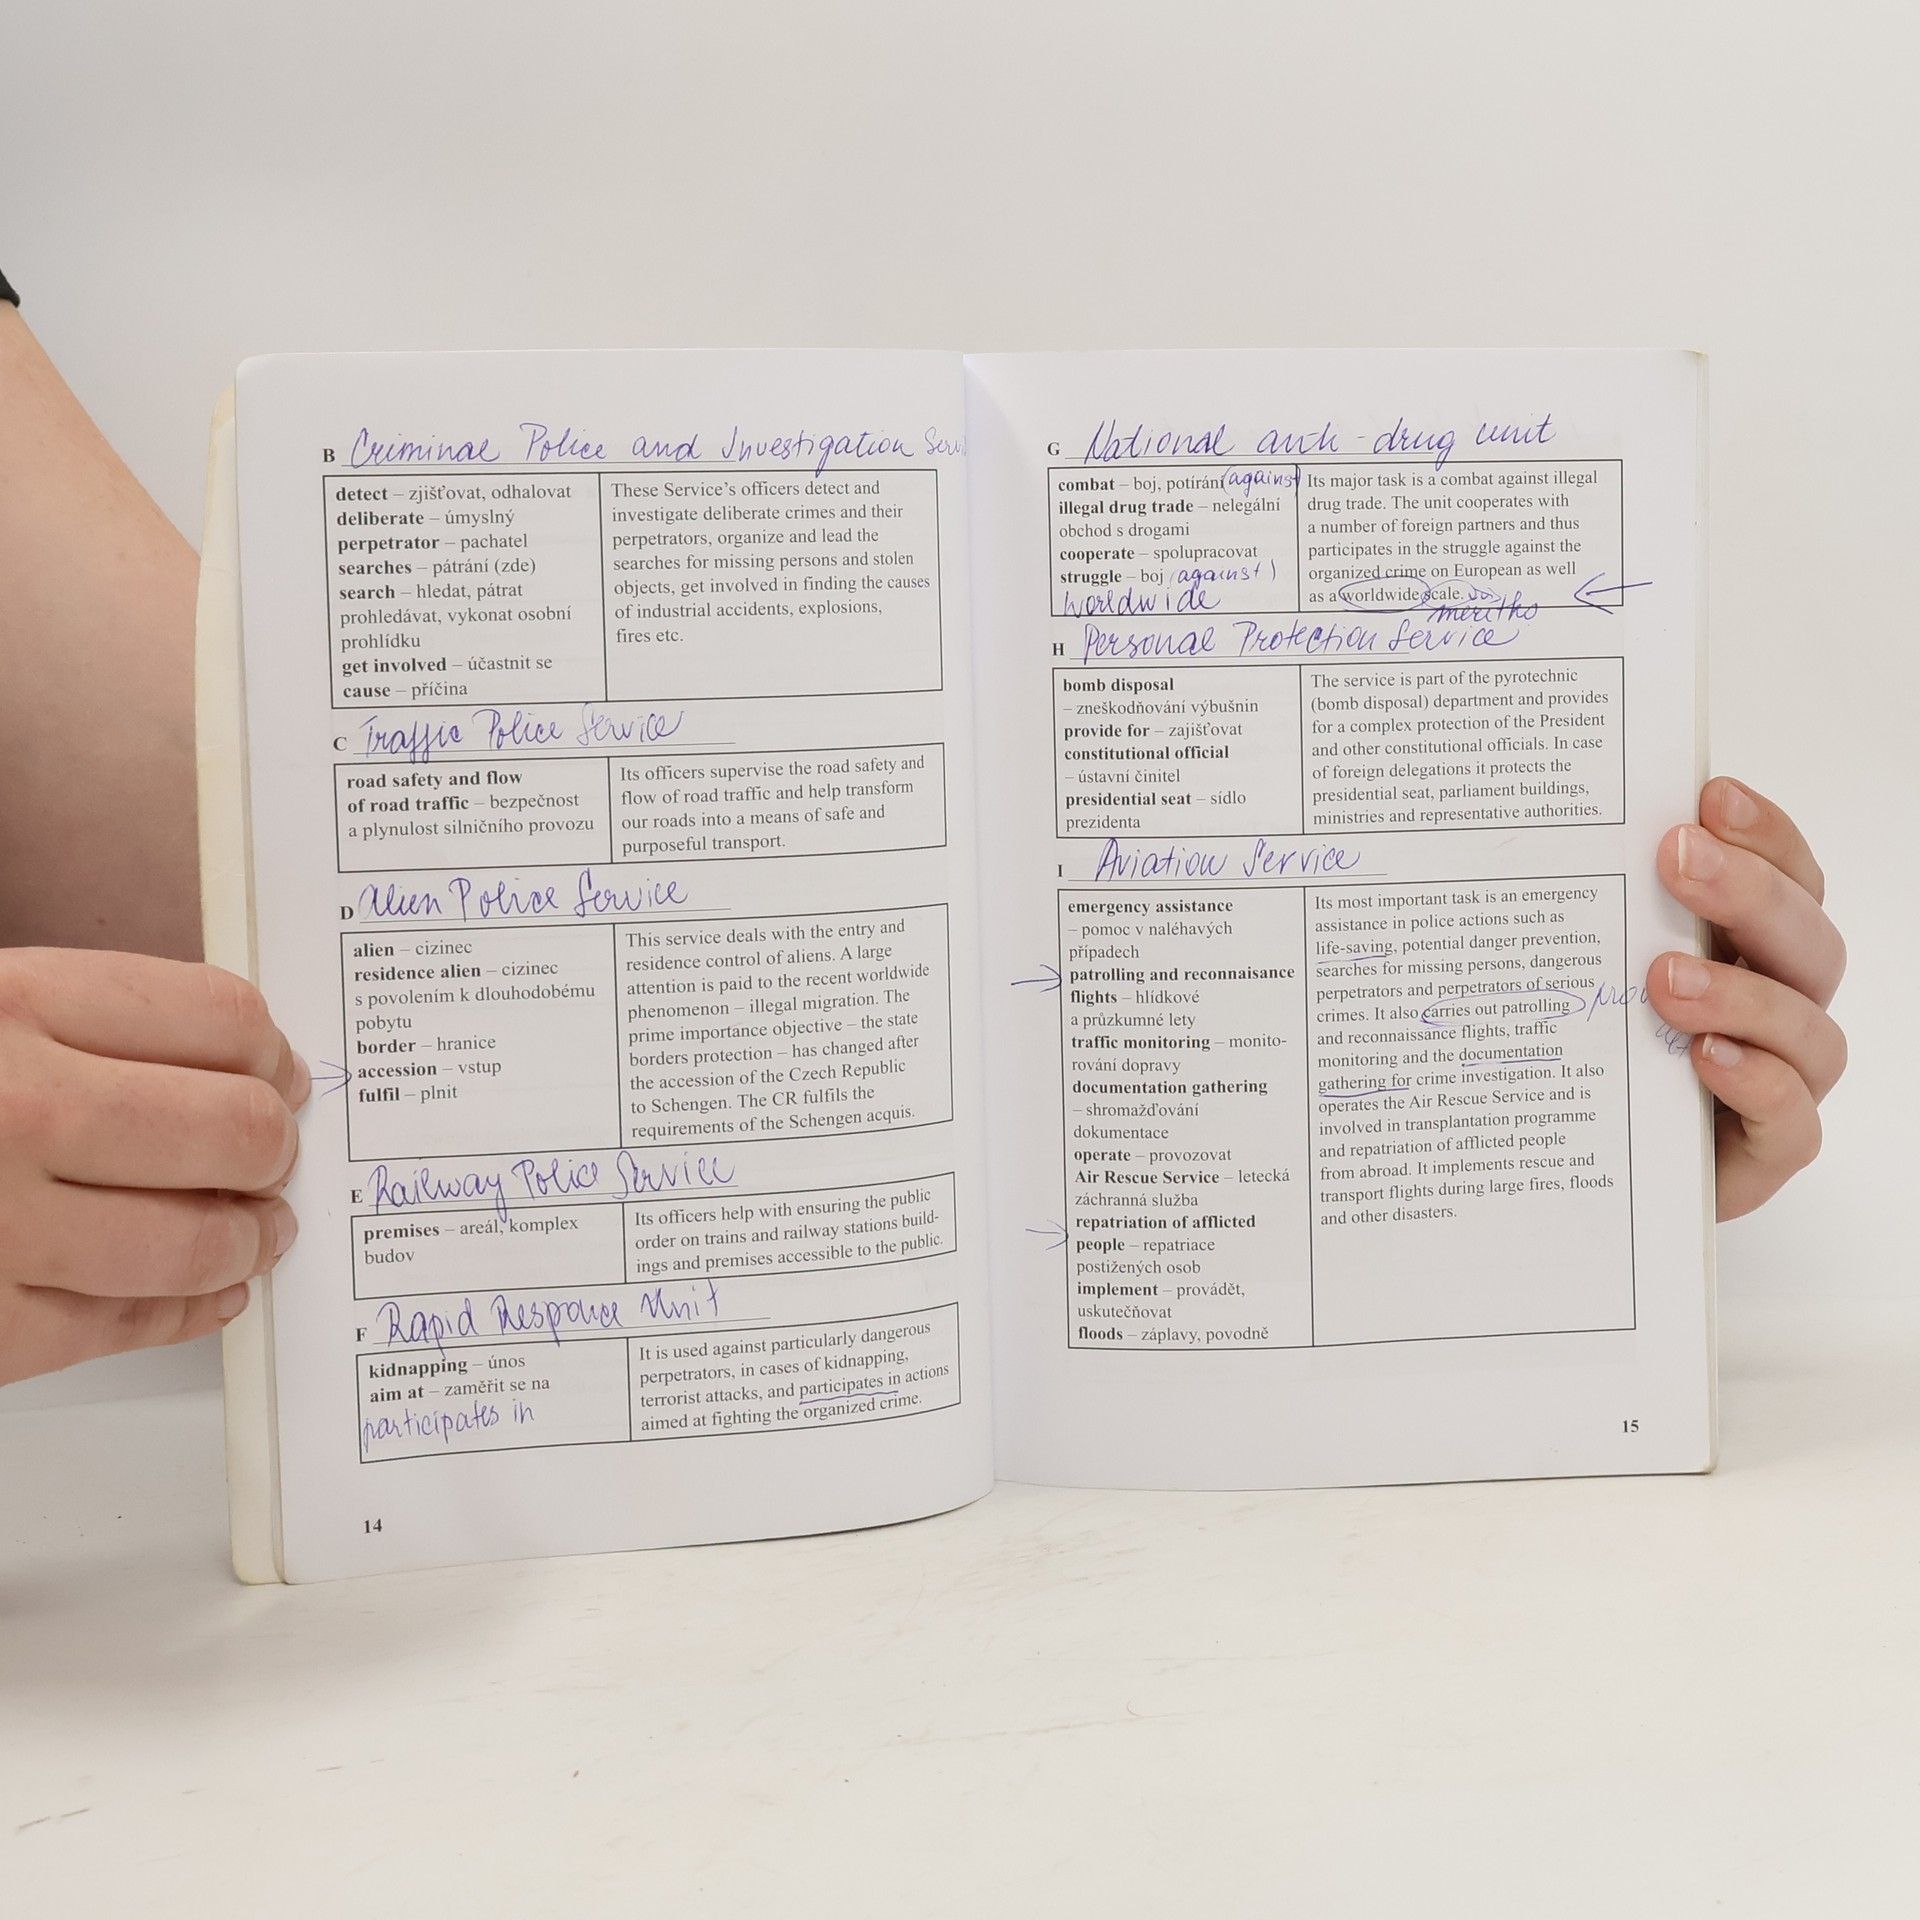 B Criminal Police and Investigation
detect – zjišťovat, odhalovat
deliberate – úmyslný
perpetrator – pachatel
searches – pátrání (zde)
search – hledat, pátrat
prohledávat, vykonat osobní
prohlídku
get involved – účastnit se
cause – příčina
These Service's officers detect and
investigate deliberate crimes and their
perpetrators, organize and lead the
searches for missing persons and stolen
objects, get involved in finding the causes
of industrial accidents, explosions,
fires etc.
C Traffic Police Service
road safety and flow
of road traffic – bezpečnost
a plynulost silničního provozu
Its officers supervise the road safety and
flow of road traffic and help transform
our roads into a means of safe and
purposeful transport.
D Alien Police Service
alien – cizinec
residence alien – cizinec
s povolením k dlouhodobému
pobytu
border – hranice
accession – vstup
fulfil – plnit
This service deals with the entry and
residence control of aliens. A large
attention is paid to the recent worldwide
phenomenon – illegal migration. The
prime importance objective – the state
borders protection – has changed after
the accession of the Czech Republic
to Schengen. The CR fulfils the
requirements of the Schengen acquis.
E Railway Police Service
premises – areál, komplex
budov
Its officers help with ensuring the public
order on trains and railway stations build-
ings and premises accessible to the public.
F Rapid Unit
kidnapping – únos
aim at – zaměřit se na
participates in
It is used against particularly dangerous
perpetrators, in cases of kidnapping,
terrorist attacks, and participates in actions
aimed at fighting the organized crime.
14
G National anti-drug unit
combat – boj, potírání (against)
illegal drug trade – nelegální
obchod s drogami
cooperate – spolupracovat
struggle – boj (against)
worldwide
Its major task is a combat against illegal
drug trade. The unit cooperates with
a number of foreign partners and thus
participates in the struggle against the
organized crime on European as well
as a worldwide scale.
H Personal Protection Service
bomb disposal
– zneškodňování výbušnin
provide for – zajišťovat
constitutional official
– ústavní činitel
presidential seat – sídlo
prezidenta
The service is part of the pyrotechnic
(bomb disposal) department and provides
for a complex protection of the President
and other constitutional officials. In case
of foreign delegations it protects the
presidential seat, parliament buildings,
ministries and representative authorities.
I Aviation Service
emergency assistance
– pomoc v naléhavých
případech
patrolling and reconnaisance
flights – hlídkové
a průzkumné lety
traffic monitoring – monito-
rování dopravy
documentation gathering
– shromažďování
dokumentace
operate – provozovat
Air Rescue Service – letecká
záchranná služba
repatriation of afflicted
people – repatriace
postižených osob
implement – provádět,
uskutečňovat
floods – záplavy, povodně
Its most important task is an emergency
assistance in police actions such as
life-saving, potential danger prevention,
searches for missing persons, dangerous
perpetrators and perpetrators of serious
crimes. It also carries out patrolling
and reconnaissance flights, traffic
monitoring and the documentation
gathering for crime investigation. It also
operates the Air Rescue Service and is
involved in transplantation programme
and repatriation of afflicted people
from abroad. It implements rescue and
transport flights during large fires, floods
and other disasters.
15